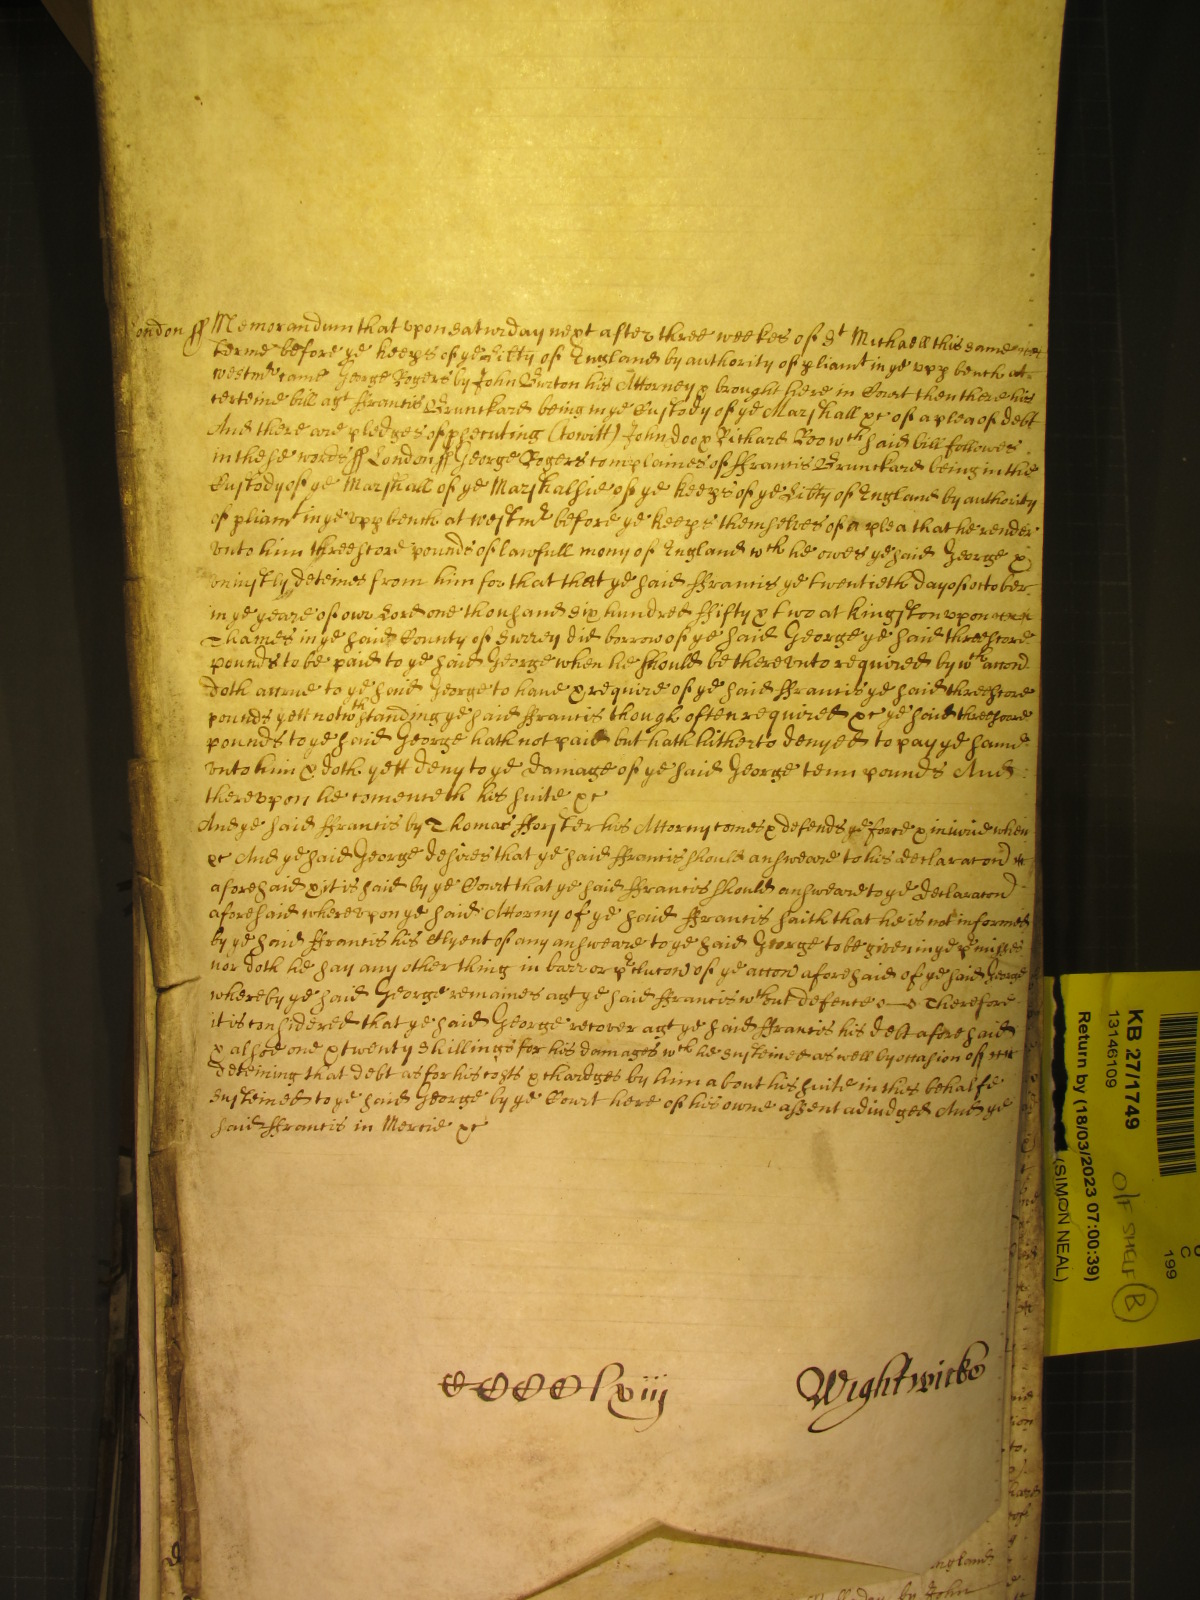 London ss Memorandum that vpon Saturday next after three weekes of St Michaell this same
terme before ye keeps of ye Libty of England by authority of pliamt in ye vpp bench att
Westmr came George Rogers by John Burton his Attorney & brought here in Court then there his
certeine bill agt ffrancis Brunckard being in ye Custody of ye Marshall &c of a plea of debt
And there are pledges of psecuting (towitt) John doo & Richard Roo wch said bill followes
in these words ss London ss George Rogers complaines of ffrancis Brunckard being in the
Custody of ye Marshall of ye Marshalsie of ye keeps of ye Libty of England by authority
of pliamt in ye vpp bench at westmr before ye keeps themselves of a plea that he render
vnto him threescore pounds of lawfull mony of England wch he owes ye said George &
vniustly deteines from him for that that ye said ffrancis ye twentieth day of october
in ye yeare of our Lord one thousand six hundred ffifty & two at kingston vpon
Thames in ye said County of Surrey did borrow of ye said George ye said threescore
pounds to be paid to ye said George when he should be therevnto required by wch accon
doth accrue to ye said George to haue & require of ye said ffrancis ye said threescore
pounds yett notwthstanding ye said ffrancis though often required &c ye said threescore
pounds to ye said George hath not paid but hath hitherto denyed to pay ye same
vnto him & doth yett deny to ye damage of ye said George tenn pounds And
therevpon he comenceth his suite &c
And ye said ffrancis by Thomas fforster his Attorny comes & defends ye force & iniurie when
&c And ye said George desires that ye said ffrancis should answeare to his declaracon
aforesaid & it is said by ye Court that ye said ffrancis should answeare to ye declaracon
aforesaid wherevpon ye said Attorny of ye said ffrancis saith that he is not informed
by ye said ffrancis his Clyent of any answeare to ye said George to be given in ye pmisses
nor doth he say any other thing in barr or pclucon of ye accon aforesaid of ye said George
whereby ye said George remaines agt ye said ffrancis wthout defence Therefore
it is considered that ye said George recover agt ye said ffrancis his debt aforesaid
& alsoe one & twenty shillings for his damages wch he susteined as well by occasion of
deteining that debt as for his costs & chardges by him about his suite in this behalfe
susteined to ye said George by ye Court here of his owne assent adiudged And ye
said ffrancis in Mercie &c
CCCClxiij
Wightwicke
ngland
by John
KB 27/1749
13146109
Return by (18/03/2023 07:00:39)
(SIMON NEAL)
O/F SHELF B
C
199